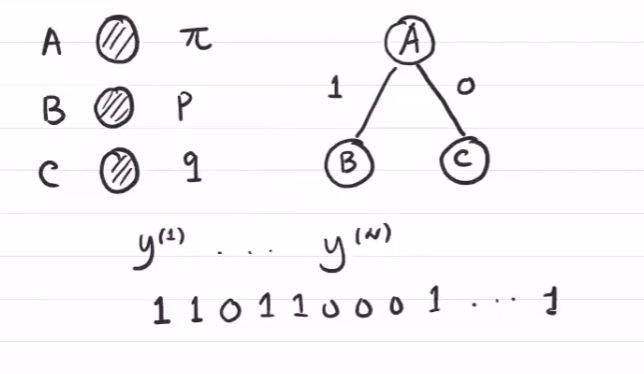 A π
B p
C q
A
1 0
B C
y^(1) ... y^(N)
1 1 0 1 1 0 0 0 1 ... 1